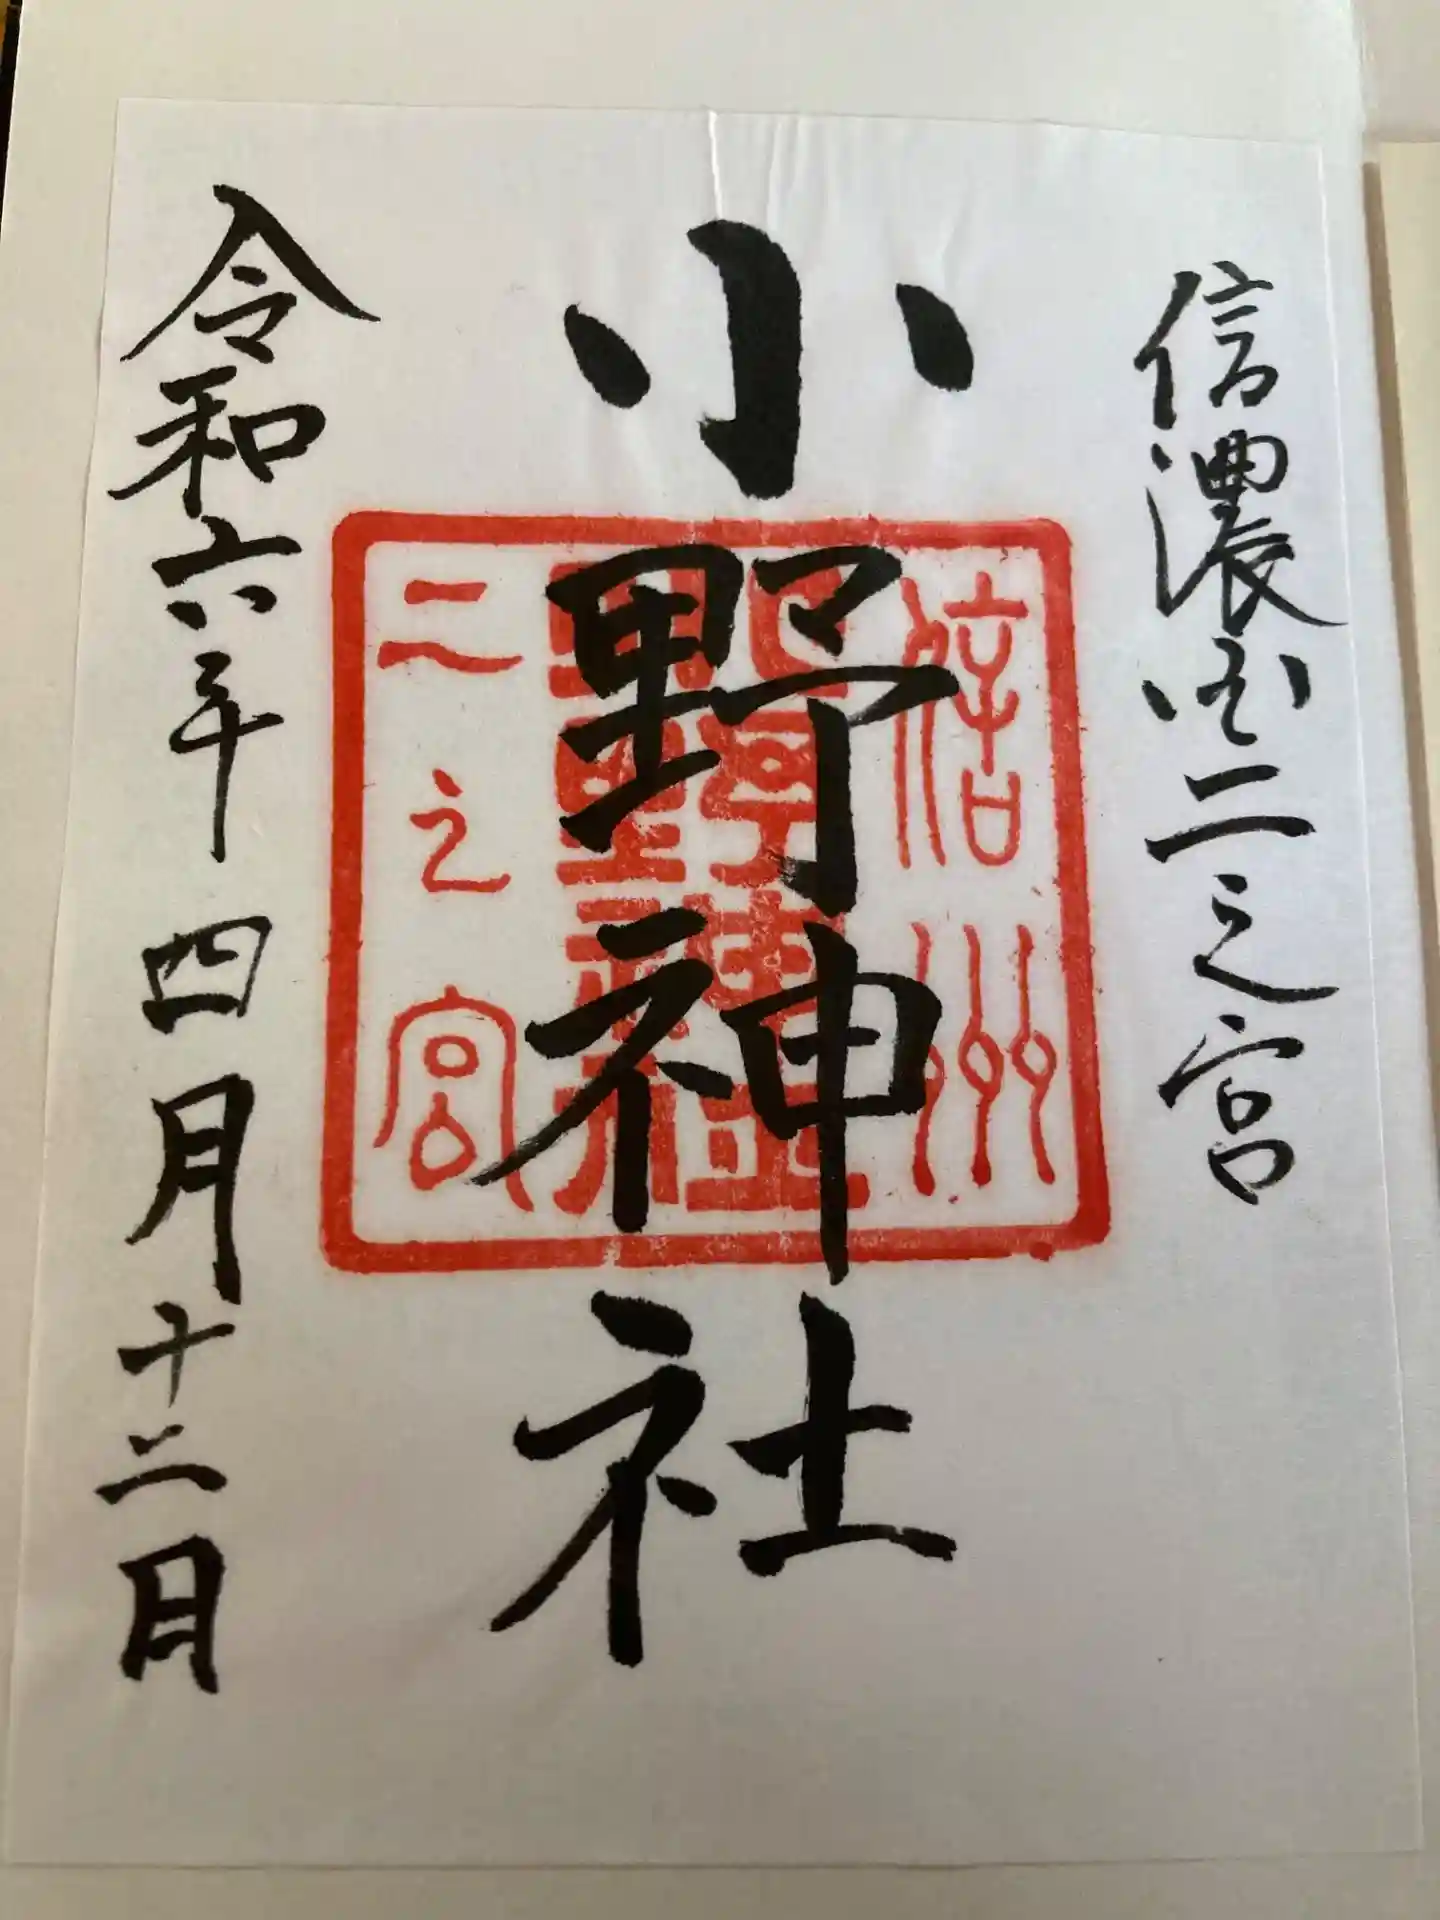 信濃国二之宮
小野神社
令和六年四月十二日
信州
二之宮